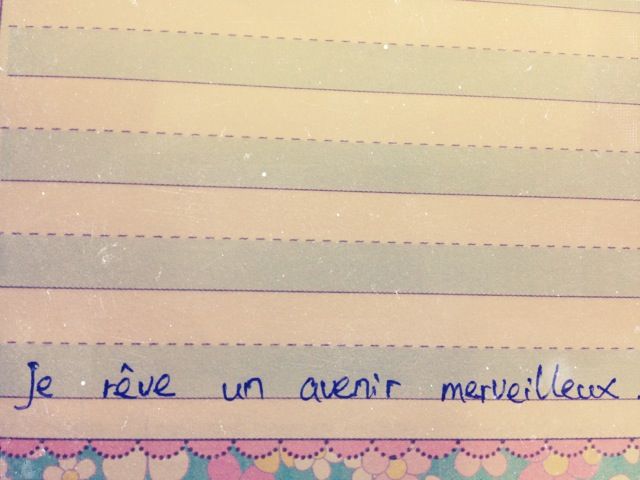 Je rêve un avenir merveilleux.